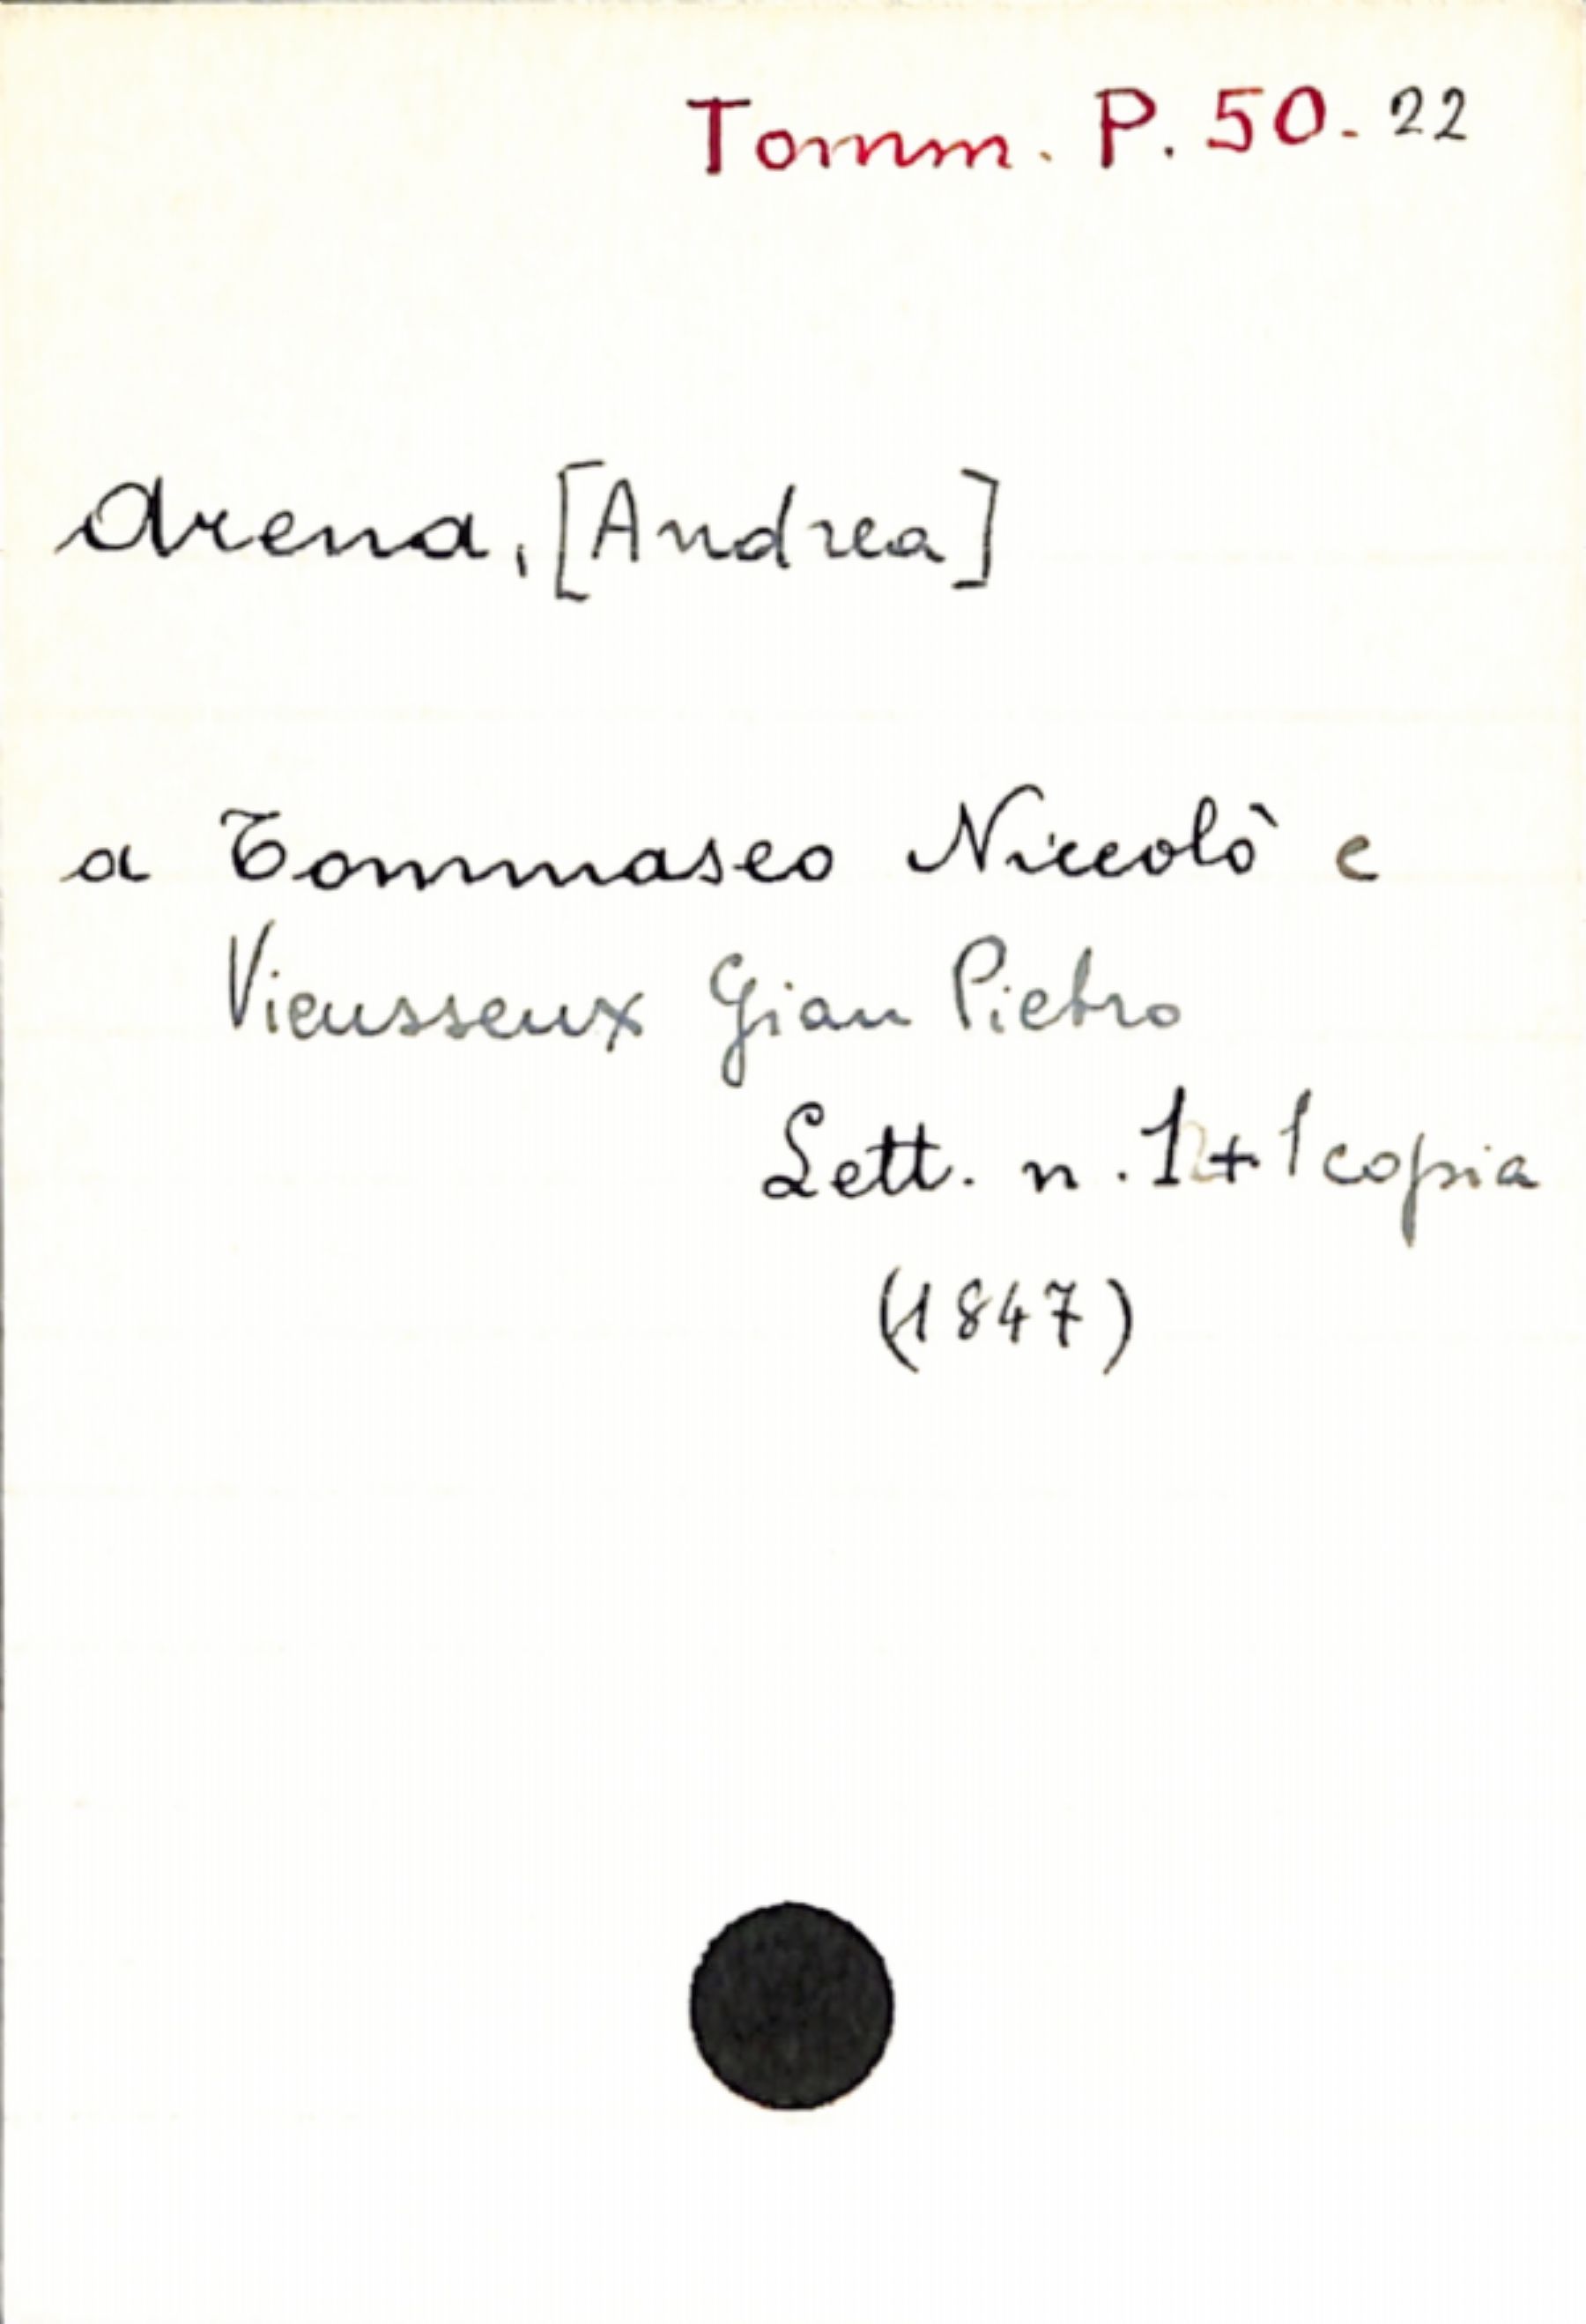 Tomm. P. 50. 22
Arena, [Andrea]
a Tommaseo Niccolò e
Vieusseux Gian Pietro
Lett. n. 1 + 1 copia
(1847)